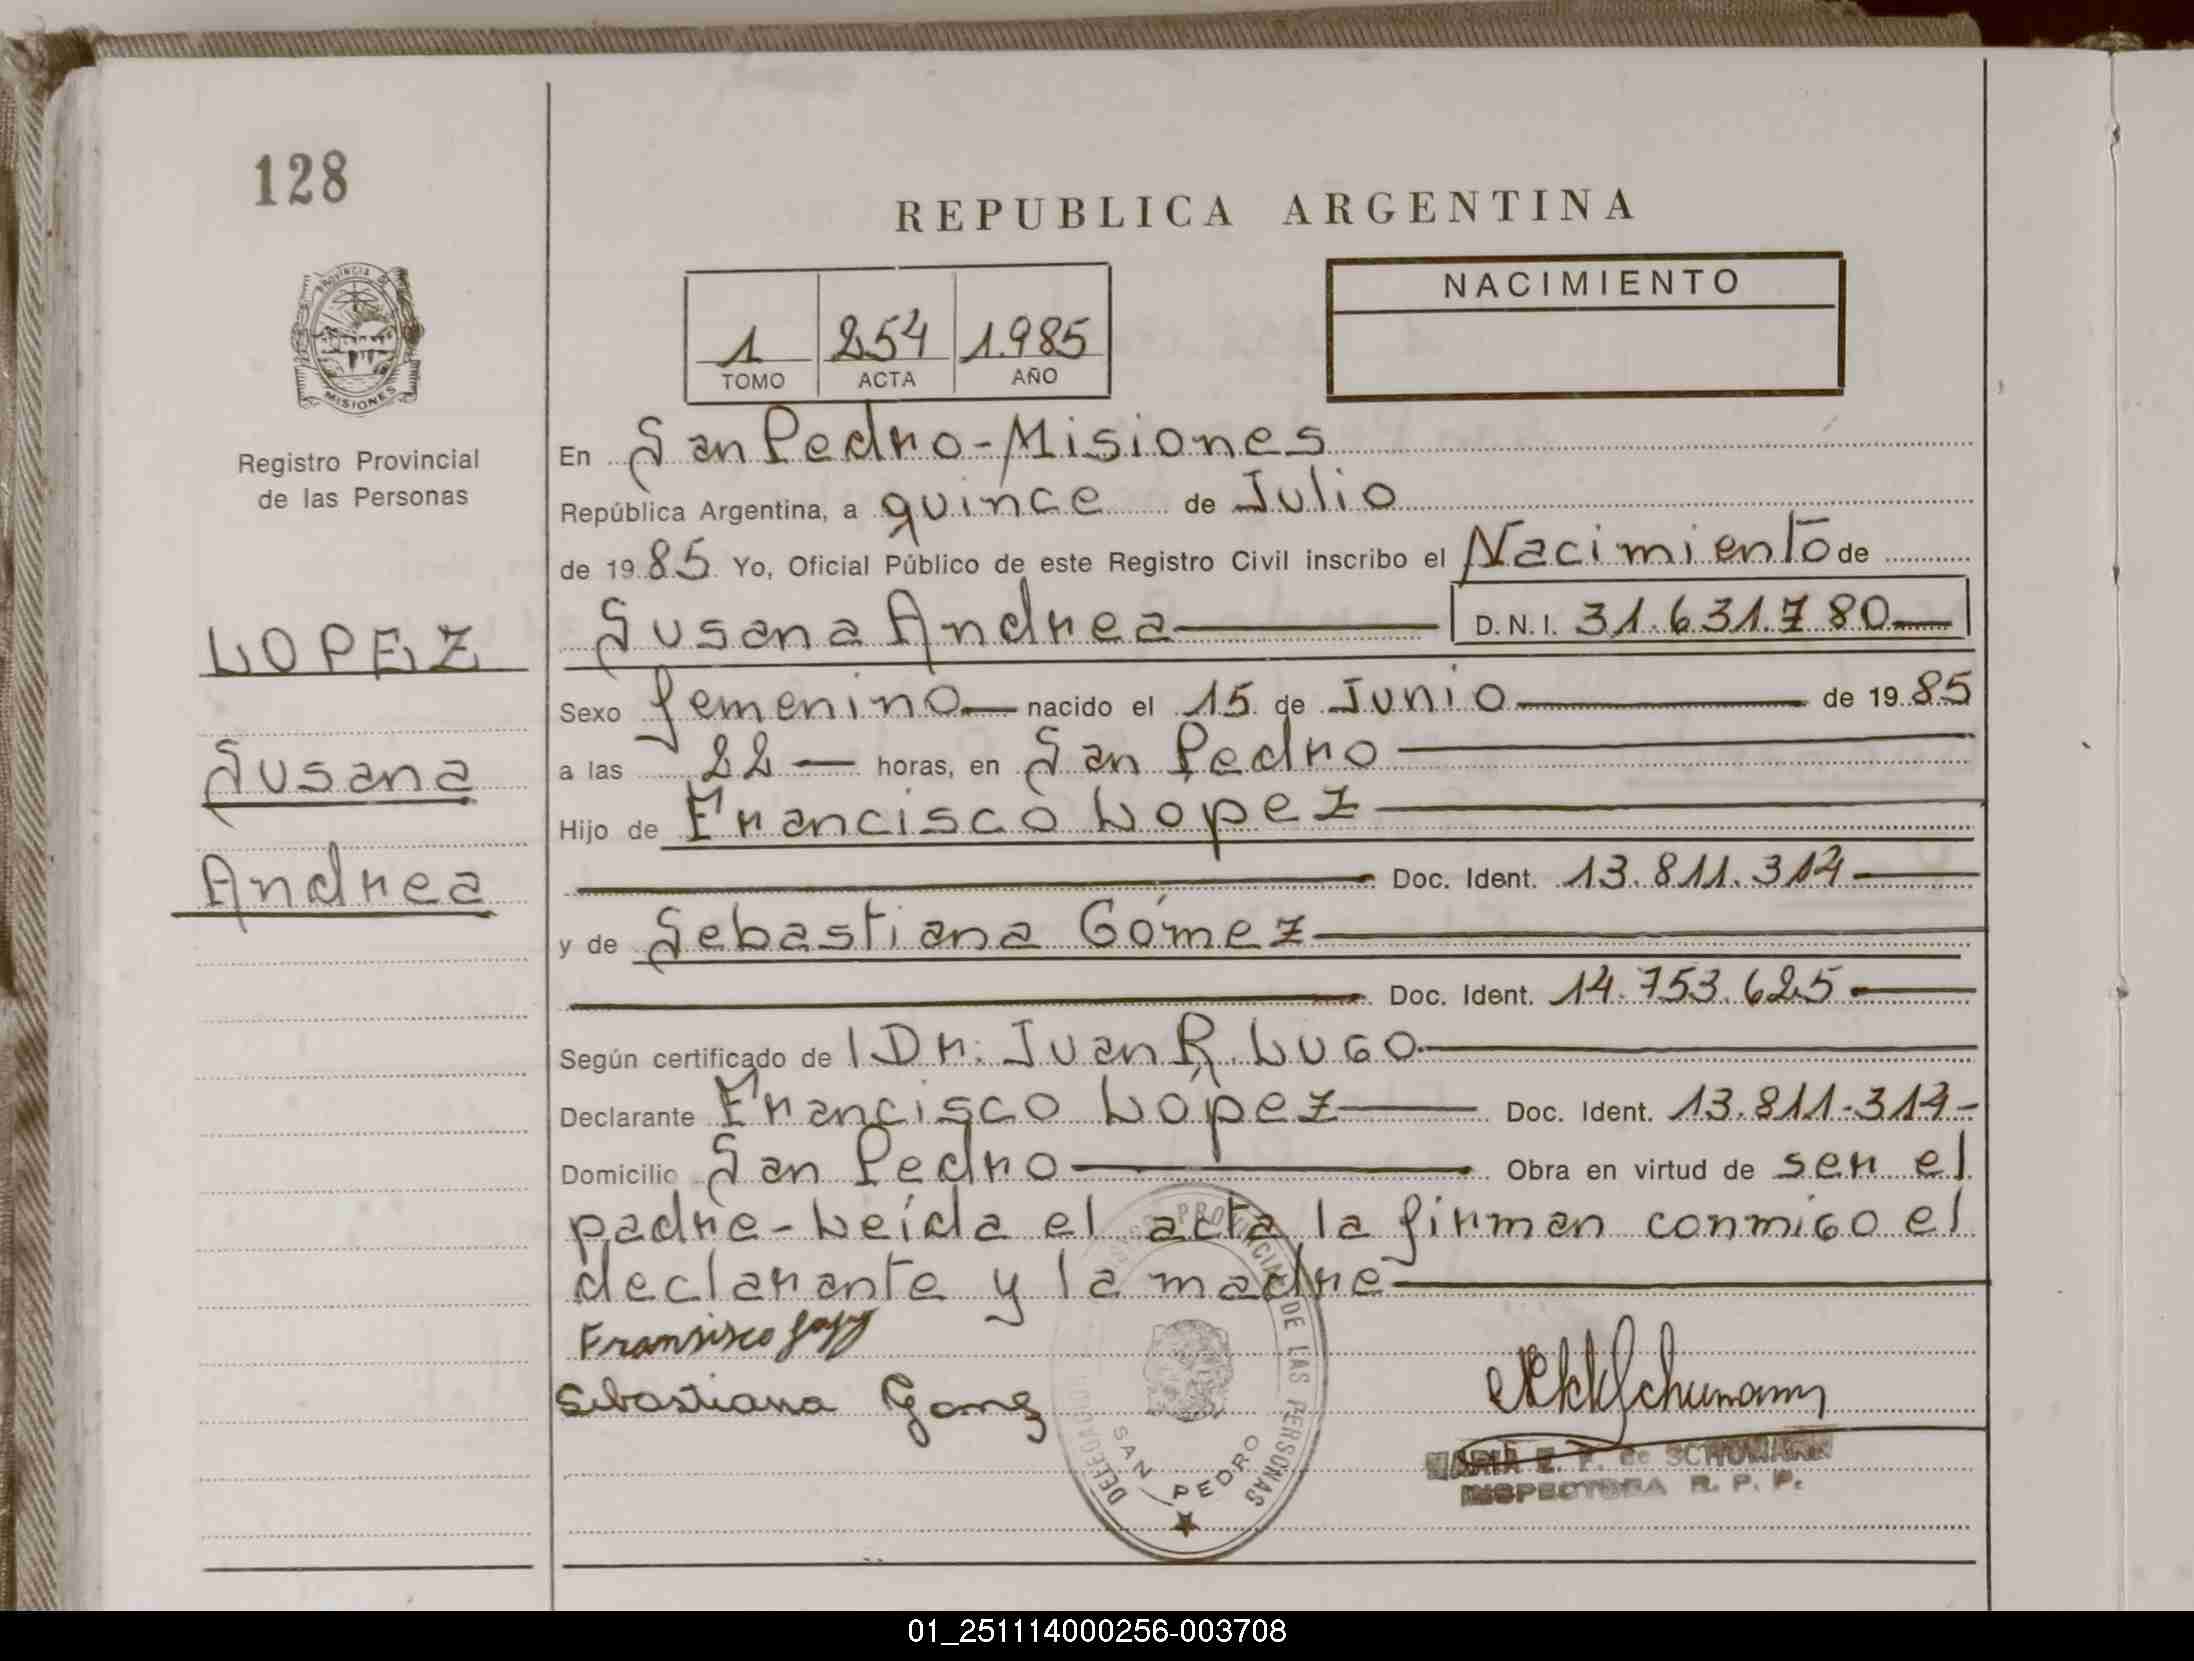 128
REPUBLICA ARGENTINA
NACIMIENTO
1 254 1.985
TOMO ACTA AÑO
PROVINCIA DE
MISIONES
Registro Provincial
de las Personas
LOPEZ
Susana
Andrea
En San Pedro - Misiones
República Argentina, a quince de Julio
de 1985 Yo, Oficial Público de este Registro Civil inscribo el Nacimiento de
Susana Andrea D.N.I. 31.631.780
Sexo femenino nacido el 15 de Junio de 1985
a las 22 horas, en San Pedro
Hijo de Francisco Lopez
Doc. Ident. 13.811.314
y de Sebastiana Gómez
Doc. Ident. 14.753.625
Según certificado de Dr. Juan R. Lugo
Declarante Francisco López Doc. Ident. 13.811.314-
Domicilio San Pedro Obra en virtud de ser el
padre - Leída el acta la firman conmigo el
declarante y la madre
Fransisco
Sebastiana Gomez
Schumann
MARIA E. F. de SCHUMANN
INSPECTORA R. P. P.
PROVINCIAL DE LAS PERSONAS
SAN PEDRO
01_251114000256-003708